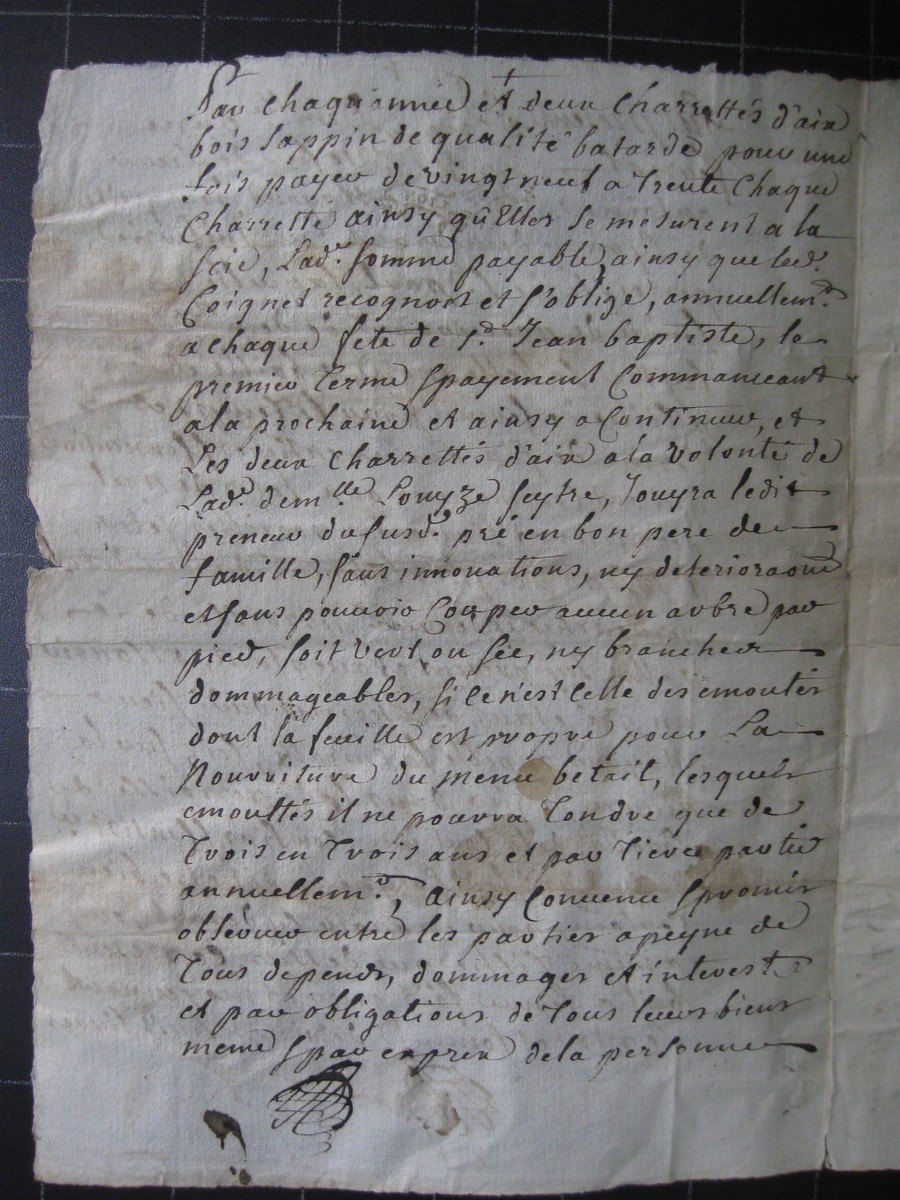 Par chaqu'année et deux charrettés d'aix
bois sappin de qualité batarde pour une
fois payer de vingt neuf a trente chaque
Charretté ainsy qu'Elles se mesurent a la
scie, Lad.e somme payable, ainsy que led.
Coignet recognoit et s'oblige, annuellem.t
a chaque fete de s.t Jean baptiste, le
premier terme & payement Commanceant
a la prochaine et ainsy a Continuer, et
Les deux charrettés d'aix a la volonté de
Lad.e dem.lle Louyze seytre, Jouyra ledit
preneur dususd. pré en bon pere de
famille, sans innovations, ny deteriora͠one
et sans pouvoir Couper aucun arbre par
pied, soit vert ou séc, ny brancher
dommageables, si ce n'est celle des emoutés
dont la feuille est propre pour La
Nourriture du menu betail, lesquels
emouttés il ne pourra Tondre que de
Trois en Trois ans et par Tierce partie
annuellem.t, ainsy Convenu & promis
observer entre les parties a peyne de
Tous depends, dommages et interests
et par obligations de Tous leurs biens
meme & par exprex de la personne